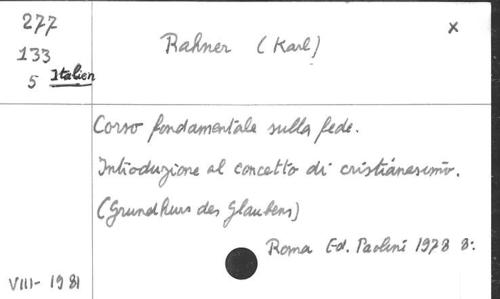 277
Rahner (Karl)
x
133
5 Italien
Corso fondamentale sulla fede.
Introduzione al concetto di cristianesimo.
(Grundkurs des Glaubens)
Roma Ed. Paoline 1978 8:
VIII-1981